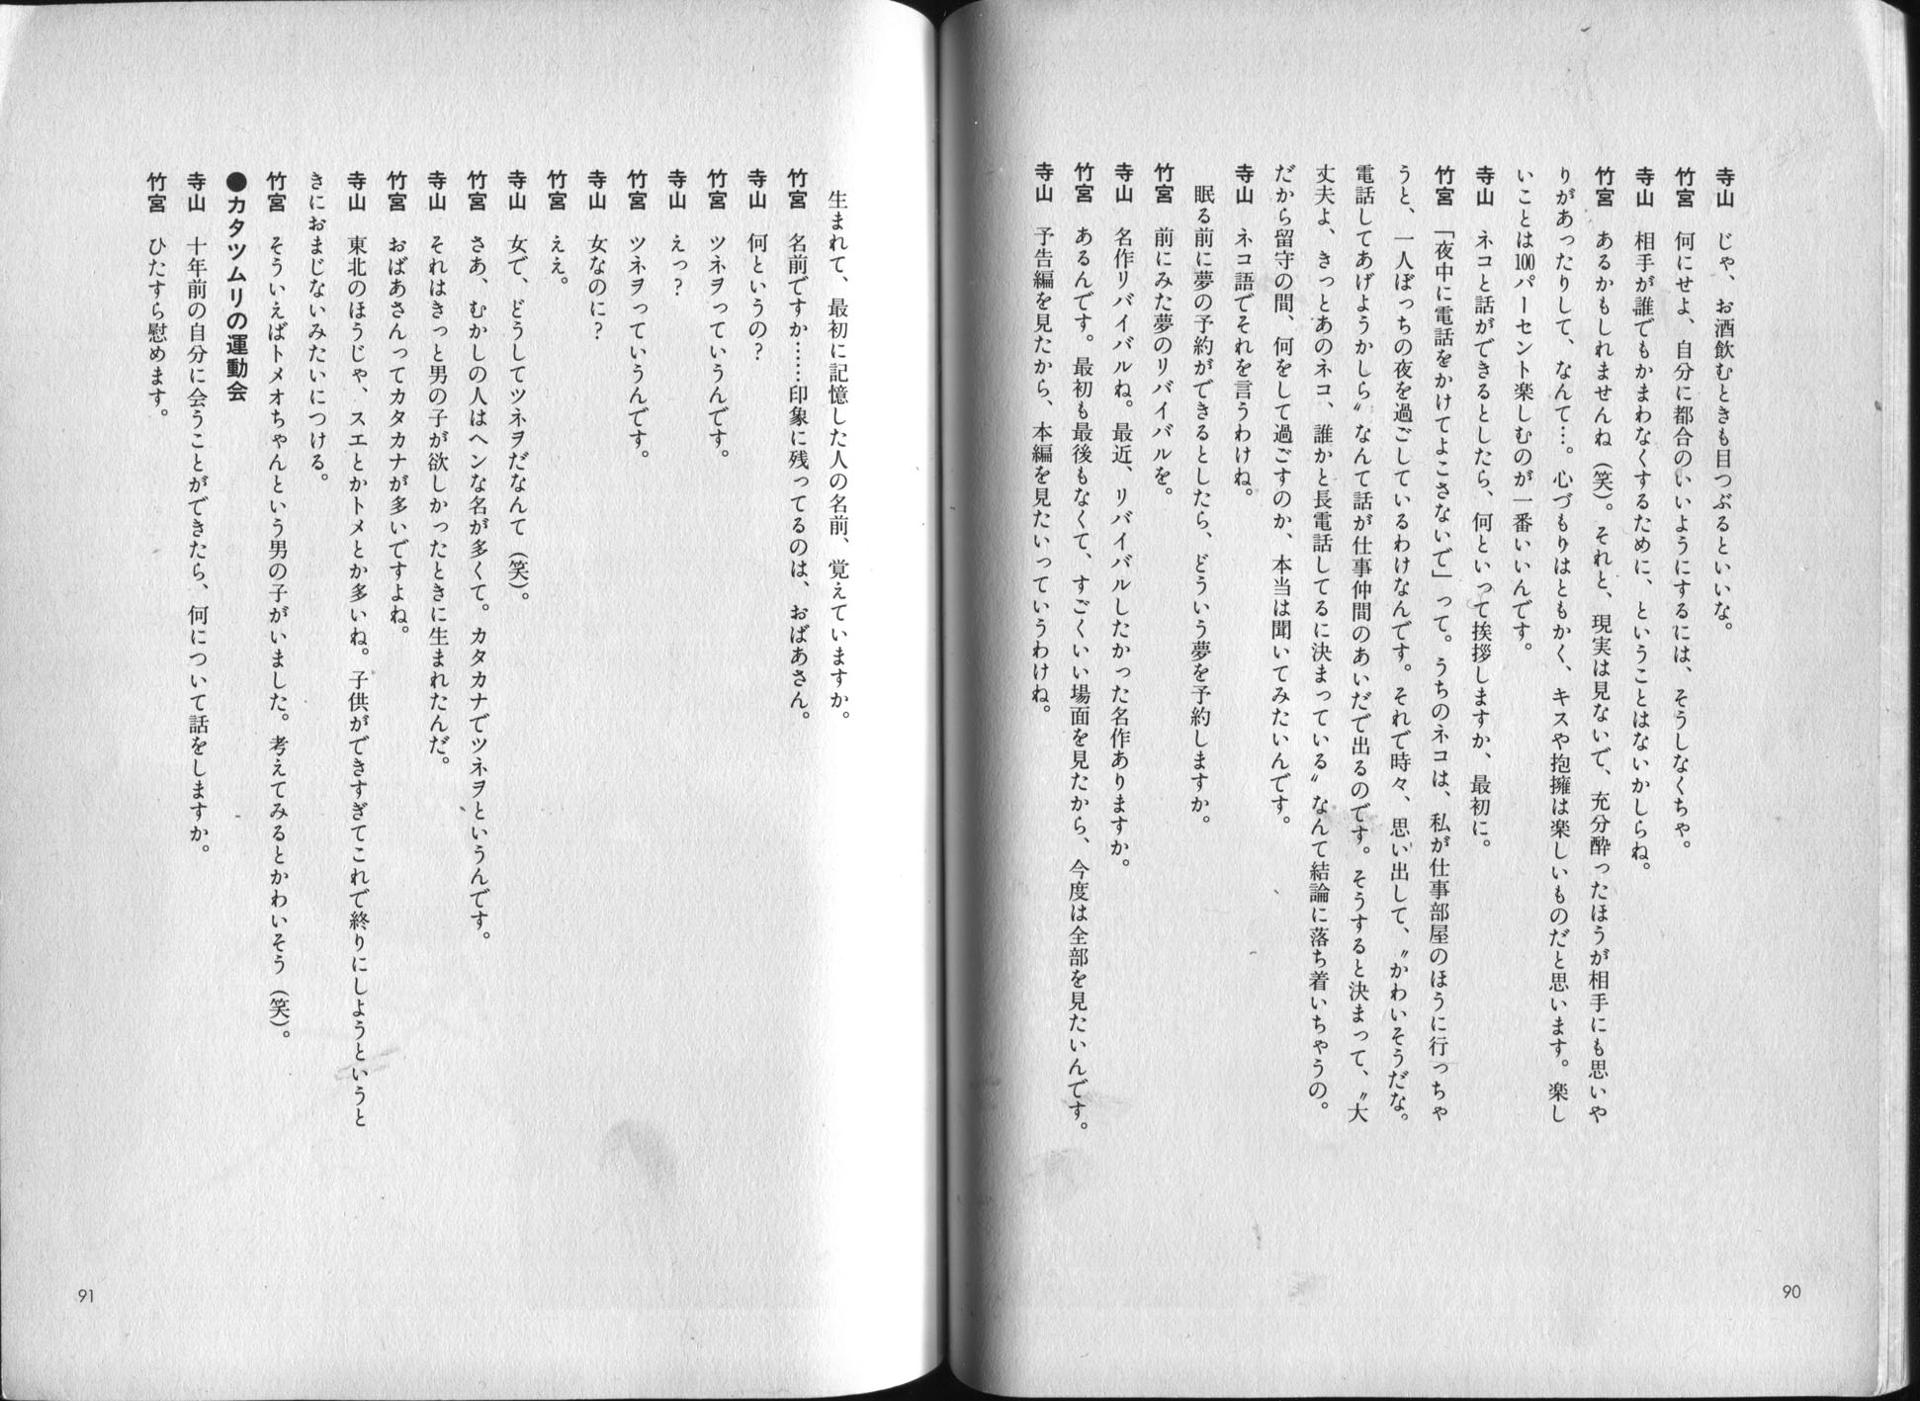 寺山　じゃ、お酒飲むときも目つぶるといいな。
竹宮　何にせよ、自分に都合のいいようにするには、そうしなくちゃ。
寺山　相手が誰でもかまわなくするために、ということはないかしらね。
竹宮　あるかもしれませんね（笑）。それと、現実は見ないで、充分酔ったほうが相手にも思いや
りがあったりして、なんて…。心づもりはともかく、キスや抱擁は楽しいものだと思います。楽し
いことは100パーセント楽しむのが一番いいんです。
寺山　ネコと話ができるとしたら、何といって挨拶しますか、最初に。
竹宮　「夜中に電話をかけてよこさないで」って。うちのネコは、私が仕事部屋のほうに行っちゃ
うと、一人ぼっちの夜を過ごしているわけなんです。それで時々、思い出して、〝かわいそうだな。
電話してあげようかしら〟なんて話が仕事仲間のあいだで出るのです。そうすると決まって、〝大
丈夫よ、きっとあのネコ、誰かと長電話してるに決まっている〟なんて結論に落ち着いちゃうの。
だから留守の間、何をして過ごすのか、本当は聞いてみたいんです。
寺山　ネコ語でそれを言うわけね。
　眠る前に夢の予約ができるとしたら、どういう夢を予約しますか。
竹宮　前にみた夢のリバイバルを。
寺山　名作リバイバルね。最近、リバイバルしたかった名作ありますか。
竹宮　あるんです。最初も最後もなくて、すごくいい場面を見たから、今度は全部を見たいんです。
寺山　予告編を見たから、本編を見たいっていうわけね。
90
　生まれて、最初に記憶した人の名前、覚えていますか。
竹宮　名前ですか……印象に残ってるのは、おばあさん。
寺山　何というの？
竹宮　ツネヲっていうんです。
寺山　えっ？
竹宮　ツネヲっていうんです。
寺山　女なのに？
竹宮　ええ。
寺山　女で、どうしてツネヲだなんて（笑）。
竹宮　さあ、むかしの人はヘンな名が多くて。カタカナでツネヲというんです。
寺山　それはきっと男の子が欲しかったときに生まれたんだ。
竹宮　おばあさんってカタカナが多いですよね。
寺山　東北のほうじゃ、スエとかトメとか多いね。子供ができすぎてこれで終りにしようというと
きにおまじないみたいにつける。
竹宮　そういえばトメオちゃんという男の子がいました。考えてみるとかわいそう（笑）。
●カタツムリの運動会
寺山　十年前の自分に会うことができたら、何について話をしますか。
竹宮　ひたすら慰めます。
91